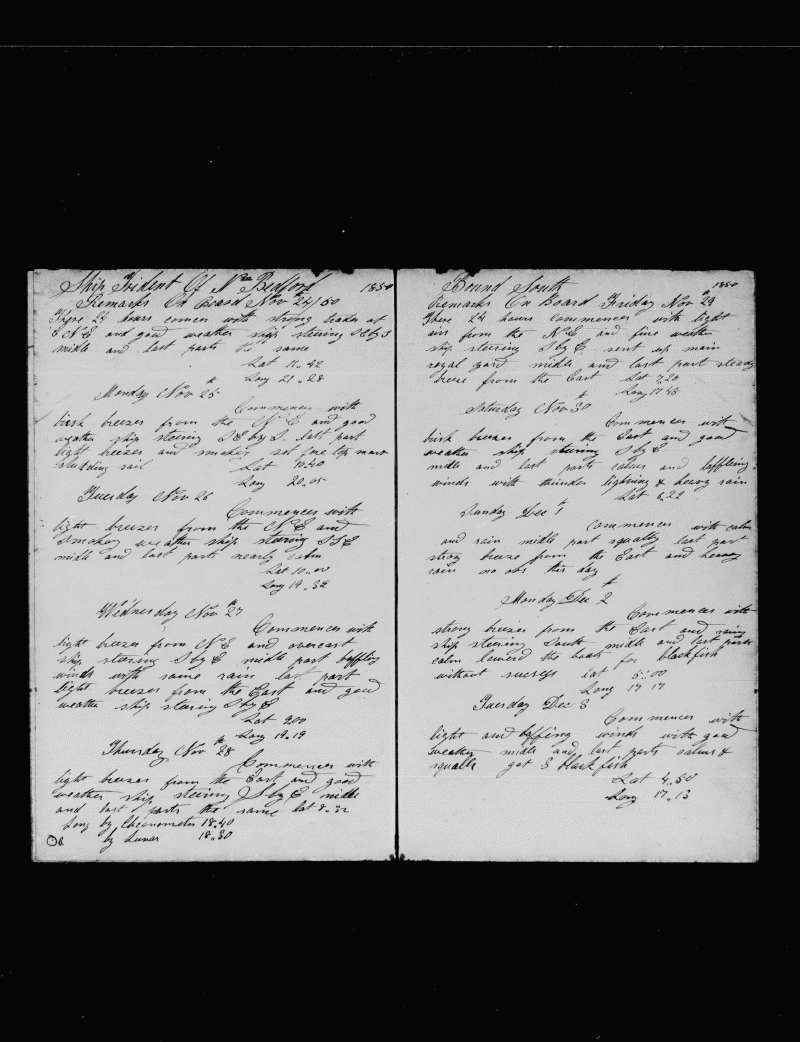 Ship Trident Of New Bedford 1850
Remarks On Board Nov 24/50
These 24 hours comces with strong trades at
E N E and good weather ship steering S E by S
middle and last parts the same
Lat 11,,42
Long 21,,28
Monday Nov 25th
Commences with
brisk breezes from the N E and good
weather ship steering S E by S. last part
light breezes and smokey set fore top mast
studding sail Lat 10.40
Long 20..05
Tuesday Nov 26
Commences with
light breezes from the N E and
smokey weather ship steering S S E
middle and last parts nearly calm
Lat 10..00
Long 19..32
Wednesday Nov 27th
Commences with
light breezes from N E and overcast
ship steering S by E middle part baffling
winds with some rain last part
light breezes from the East and good
weather ship stearing S by E
Lat 9.00
Long 19.19
Thursday Nov 28th
Commences with
light breezes from the East and good
weather ship steering S by E middle
and last parts the same Lat 8..32
Long by Chronometer 18.40
by Lunar 18..30
Bound South 1850
Remarks On Board Friday Nov 29
These 24 hours commences with light
airs from the N E and fine weather
ship steering S by E sent up main
royal yard middle and last part steady
breeze from the East Lat 7,20
Long 17 48
Saturday Nov 30th
Commences with
brisk breezes from the East and good
weather ship steering S by E
middle and last parts calms and baffling
winds with thunder lightning & heavy rain
Lat 6,22
Sunday Dec 1th
Commences with calm
and rain middle part squally last part
strong breeze from the East and heavy
rain no obs this day
Monday Dec 2th
Commences with
strong breezes from the East and rainy
ship steering South middle and last parts
calm lowerd the boats for blackfish
without success Lat 5:00
Long 17 17
Tuesday Dec 3
Commences with
light and baffling winds with good
weather middle and last parts calms &
squalls got 3 blackfish
Lat 4,,50
Long 17,,13